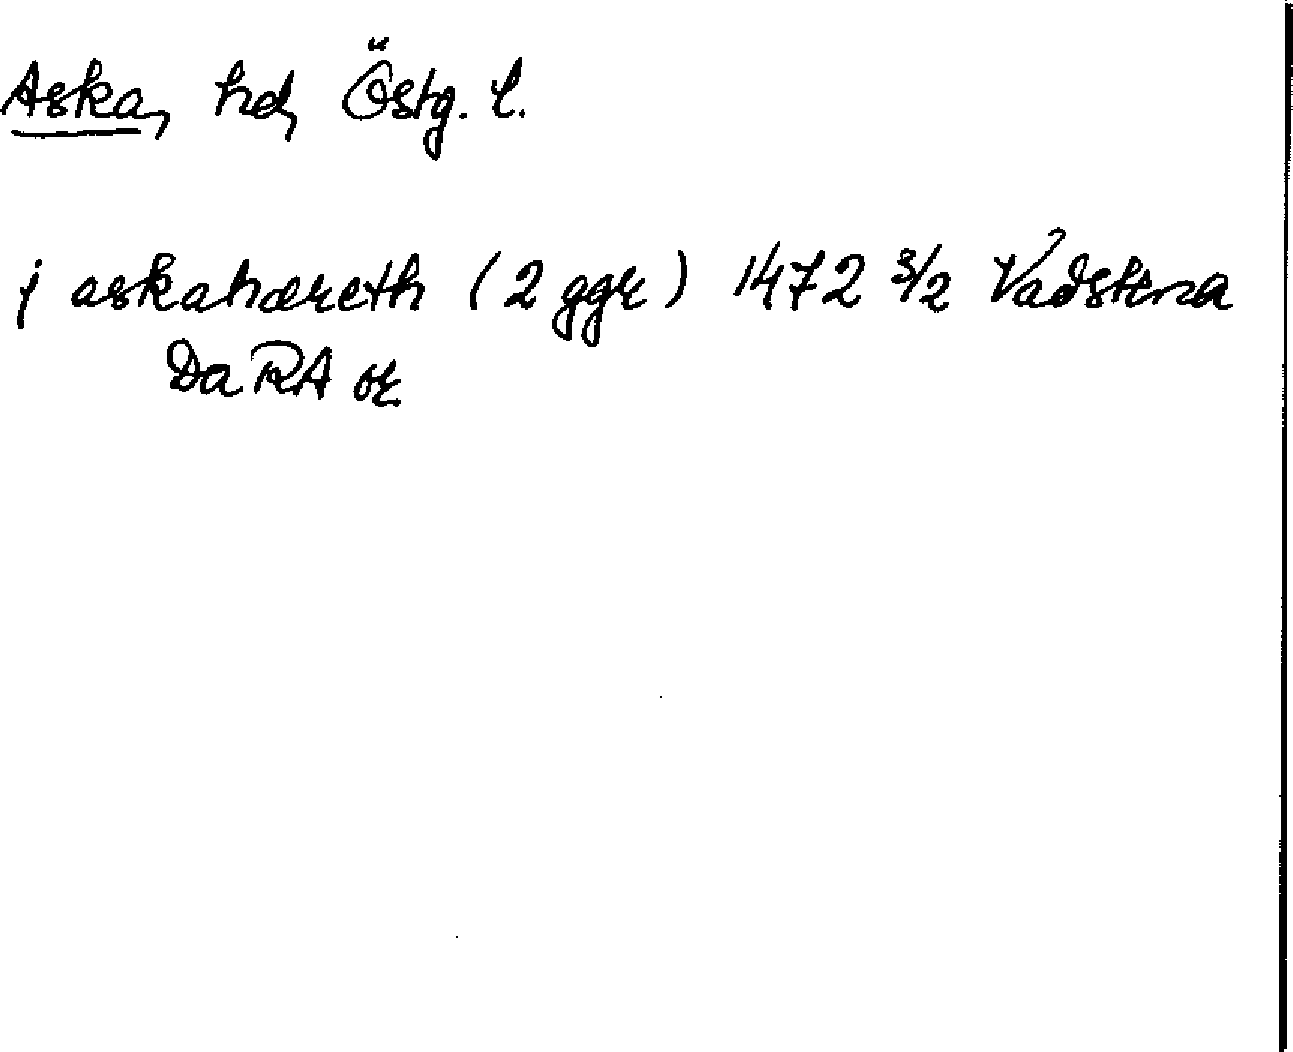 Aska, hd, Östg. l.
j askahæreth (2 ggr) 1472 3/2 Vadstena
DaRA or